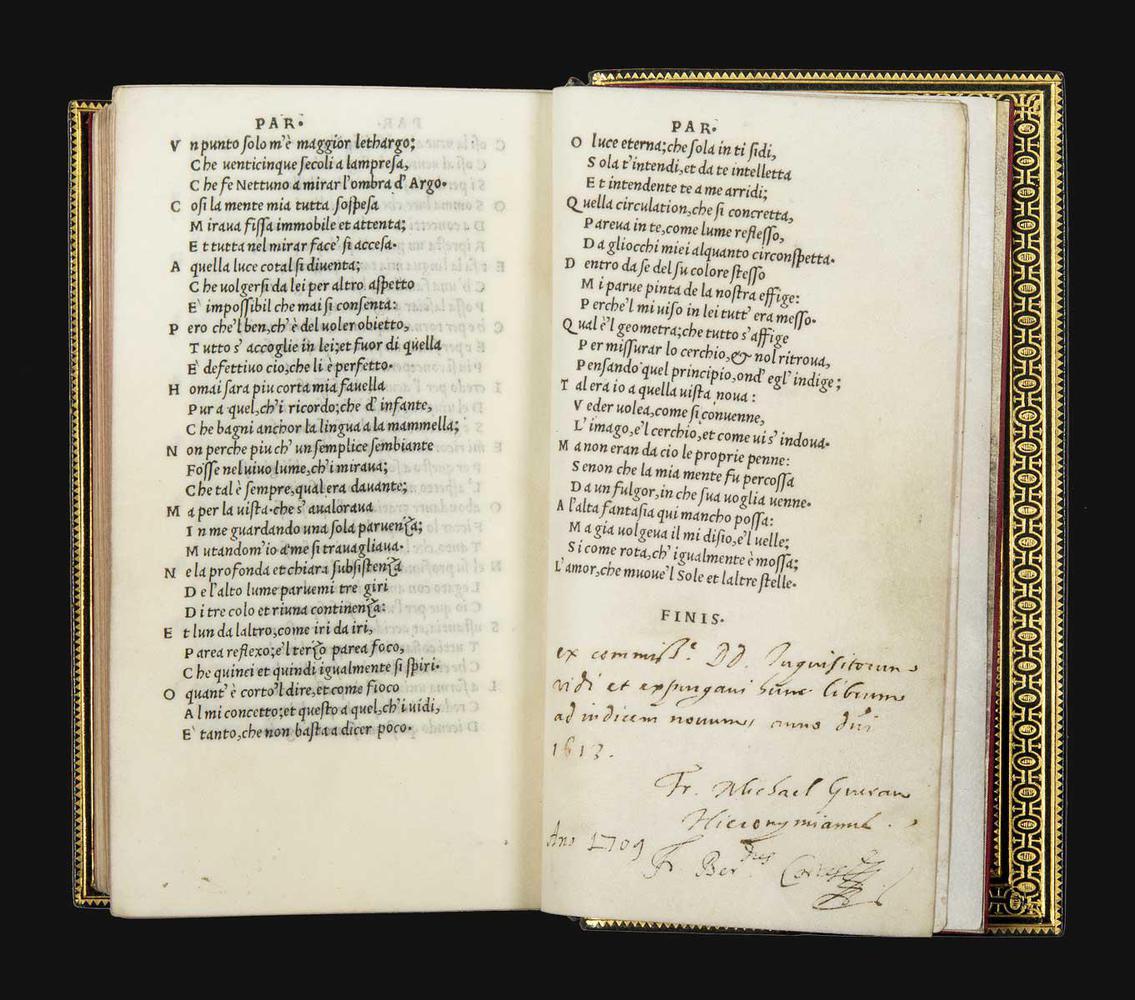 PAR.
V n punto solo m'è maggior lethargo;
C he uenticinque secoli a lampresa,
C he fe Nettuno a mirar l'ombra d' Argo.
C osi la mente mia tutta sospesa
M iraua fissa immobile et attenta;
E t tutta nel mirar face' si accesa.
A quella luce cotal si diuenta;
C he uolgersi da lei per altro aspetto
E' impossibil che mai si consenta:
P ero che'l ben, ch'è del uoler obietto,
T utto s' accoglie in lei; et fuor di quella
E' defettiuo cio, che li è perfetto.
H omai sara piu corta mia fauella
P ur a quel, ch'i ricordo; che d' infante,
C he bagni anchor la lingua a la mammella;
N on perche piu ch' un semplice sembiante
Fosse nel uiuo lume, ch'i miraua;
C he tal è sempre, qual era dauante;
M a per la uista. che s' aualoraua
I n me guardando una sola paruenza;
M utandom'io a me si trauagliaua.
N e la profonda et chiara subsistenza
D e l'alto lume paruemi tre giri
D i tre colo et riuna continenza:
E t lun da laltro, come iri da iri,
P area reflexo; e'l terzo parea foco,
C he quinci et quindi igualmente si spiri.
O quant' è corto'l dire, et come fioco
A l mi concetto; et questo a quel, ch'i uidi,
E' tanto, che non basta a dicer poco.
PAR.
O luce eterna; che sola in ti sidi,
S ola t'intendi, et da te intelletta
E t intendente te a me arridi;
Q uella circulation, che si concretta,
P areua in te, come lume reflesso,
D a gliocchi miei alquanto circonspetta.
D entro da se del su colore stesso
M i parue pinta de la nostra effige:
P erche'l mi uiso in lei tutt' era messo.
Q ual è'l geometra; che tutto s'affige
P er missurar lo cerchio, & nol ritroua,
P ensando quel principio, ond' egl' indige;
T al era io a quella uista noua:
V eder uolea, come si conuenne,
L' imago, e'l cerchio, et come ui s' indoua.
M a non eran da cio le proprie penne:
S enon che la mia mente fu percossa
D a un fulgor, in che sua uoglia uenne.
A l'alta fantasia qui mancho possa:
M a gia uolgeua il mi disio, e'l uelle;
S i come rota, ch' igualmente è mossa;
L'amor, che muoue'l Sole et laltre stelle.
FINIS.
ex commiss.e DD. Inquisitorum
vidi et expurgaui hunc librum
ad indicem nouum, anno dñi
1613.
Fr. Michael
Hieronymianus.
Ano 1709
Fr Ber.dus